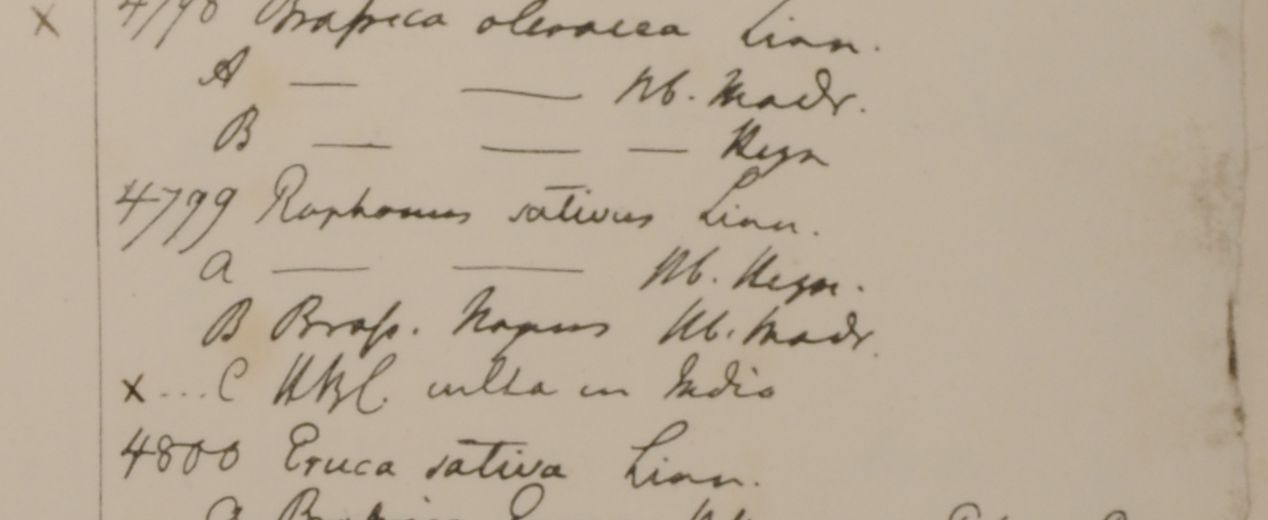 x 4798 Brassica oleracea Linn.
A — — Hb. Madr.
B — — — Heyn
4799 Raphanus sativus Linn.
a — — Hb. Heyn.
B Brass. Napus Hb. Madr.
x ... C HBC. culta in India
4800 Eruca sativa Linn.